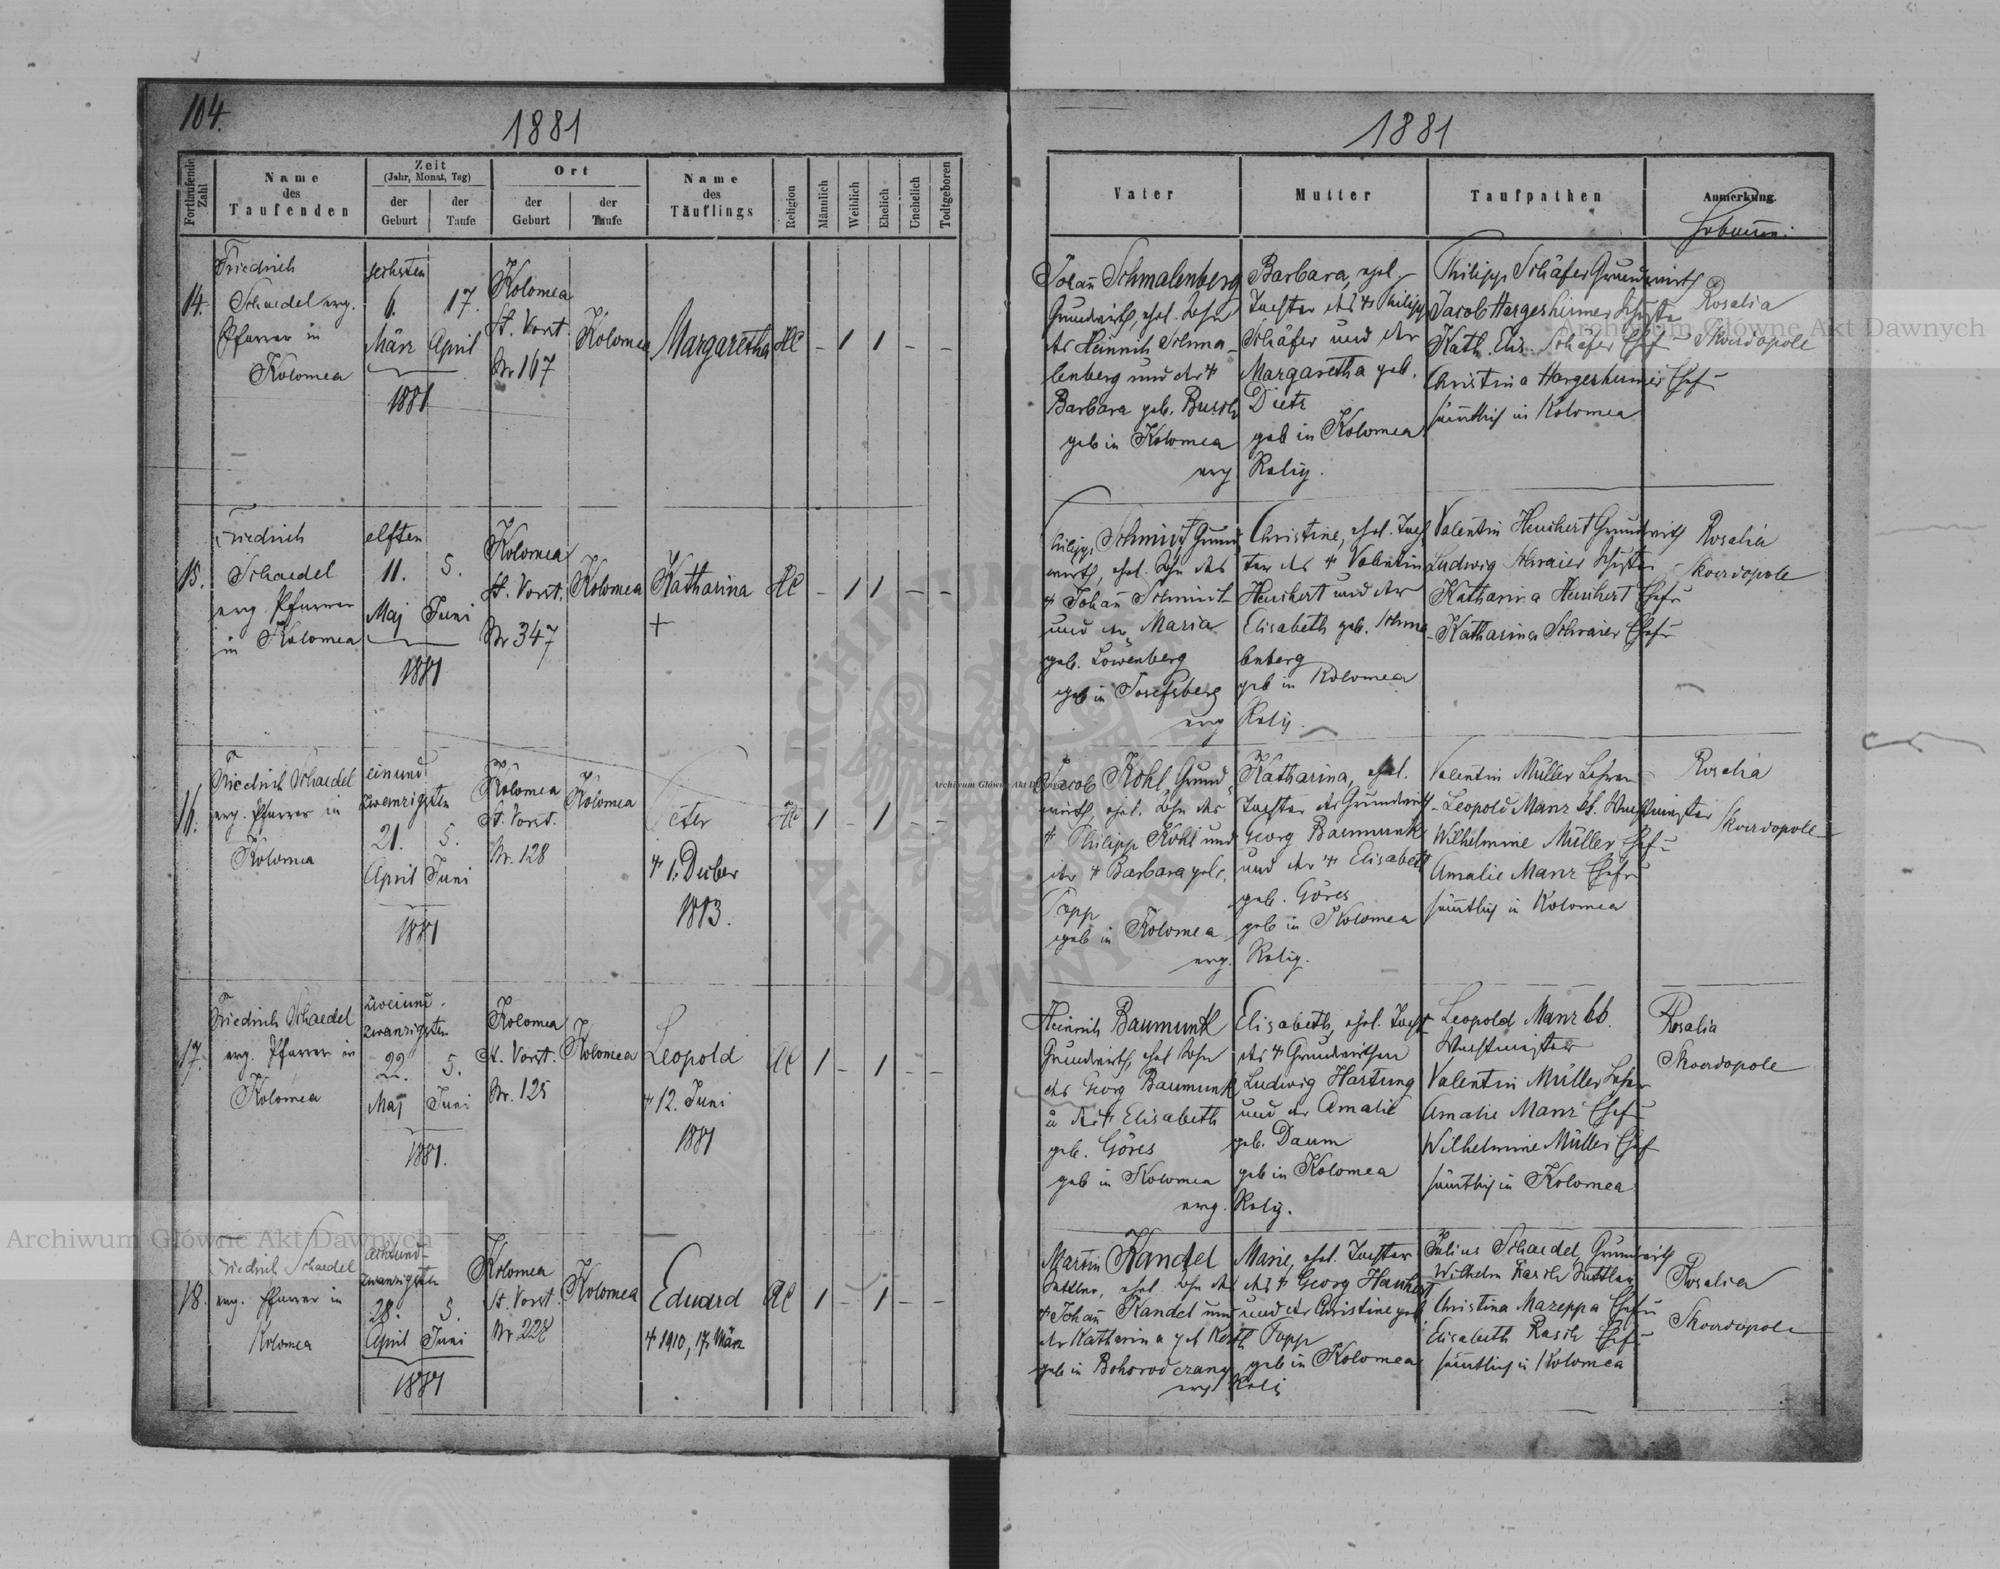 104.
1881
1881
Fortlaufende Zahl
Name des Taufenden
Zeit (Jahr, Monat, Tag)
der Geburt
der Taufe
Ort
der Geburt
der Taufe
Name des Täuflings
Religion
Männlich
Weiblich
Ehelich
Unehelich
Todtgeboren
Vater
Mutter
Taufpathen
Anmerkung.
14.
Friedrich
Schaedel evg.
Pfarrer in
Kolomea
sechsten
6. 17.
März April
1881
Kolomea
St. Vorst.
Nr 167
Kolomea
Margaretha
HC – 1 1 – –
Johan̄ Schmalenberg
Grundwirth, ehel. Sohn
des Heinrich Schma-
lenberg und der +
Barbara geb. Busch
geb in Kolomea
evg
Barbara, ehel.
Tochter des + Philipp
Schäfer und der
Margaretha geb.
Dietz
geb in Kolomea
Relig.
Philipp Schäfer Grundwirth
Jacob Hargesheimer
Kath. Elis. Schäfer Ehef
Christina Hargesheimer Ehef
säm̄tlich in Kolomea
Rosalia
Skordopole
15.
Friedrich
Schaedel
evg. Pfarrer
in Kolomea
elften
11. 5.
Maj Juni
1881
Kolomea
St. Vorst.
Nr 347
Kolomea
Katharina
+
HC – 1 1 – –
Philipp Schmidt Grund
wirth, ehel. Sohn des
+ Johan̄ Schmidt
und der Maria
geb. Löwenberg
geb in Josefsberg
evg
Christine, ehel. Toch
ter des + Valentin
Heuchert und der
Elisabeth geb. Schma
lenberg
geb in Kolomea
Relig.
Valentin Heuchert Grundwirth
Ludwig Schraier
Katharina Heuchert Ehef
Katharina Schraier Ehef
Rosalia
Skordopole
16.
Friedrich Schaedel
evg. Pfarrer in
Kolomea
einund
zwanzigsten
21. 5.
April Juni
1881
Kolomea
St. Vorst.
Nr. 128
Kolomea
Peter
+ 1. Dezber
HC 1 – 1 – –
Jacob Kohl Grund
wirth, ehel. Sohn des
+ Philipp Kohl und
der + Barbara geb.
Popp
geb in Kolomea
evg.
Katharina, ehel.
Tochter des Grundwirth
Georg Baumunk
und der + Elisabeth
geb. Göres
geb in Kolomea
Relig.
Valentin Müller Lehrer
Leopold Manz bb. Wachtmeister
Wilhelmine Müller Ehef
Amalie Manz Ehef
säm̄tlich in Kolomea
Rosalia
Skordopole
17.
Friedrich Schaedel
evg. Pfarrer in
Kolomea
zweiund-
zwanzigsten
22. 5.
Maj Juni
1881.
Kolomea
St. Vorst.
Nr. 125
Kolomea
Leopold
+ 12. Juni
1881
HC 1 – 1 – –
Heinrich Baumunk
Grundwirth, ehel Sohn
des Georg Baumunk
u der + Elisabeth
geb. Göres
geb in Kolomea
evg.
Elisabeth, ehel. Tocht
des + Grundwirthen
Ludwig Hartung
und der Amalie
geb. Daum
geb in Kolomea
Relig.
Leopold Manz bb.
Wachtmeister
Valentin Müller Lehrer
Amalie Manz Ehef
Wilhelmine Müller Ehef
säm̄tlich in Kolomea
Rosalia
Skordopole
18.
Friedrich Schaedel
evg. Pfarrer in
Kolomea
achtund-
zwanzigsten
28. 5.
April Juni
1881
Kolomea
St. Vorst.
Nr. 228
Kolomea
Eduard
+ 1910, 17. März
HC 1 – 1 – –
Martin Kandel
Sattler, ehel. Sohn des
+ Johan̄ Kandel und
der Katharina geb
geb in Bohorodczany
evg
Marie, ehel. Tochter
des + Georg
und der Christine geb
Popp
geb in Kolomea
Relig
Julius Schaedel, Grundwirth
Wilhelm Rasch Sattler
Christina Mazeppa Ehef
Elisabeth Rasch Ehef
säm̄tlich in Kolomea
Rosalia
Skordopole
Archiwum Główne Akt Dawnych
Archiwum Główne Akt Dawnych
Archiwum Główne Akt Dawnych
ARCHIWUM
AKT DAWNYCH